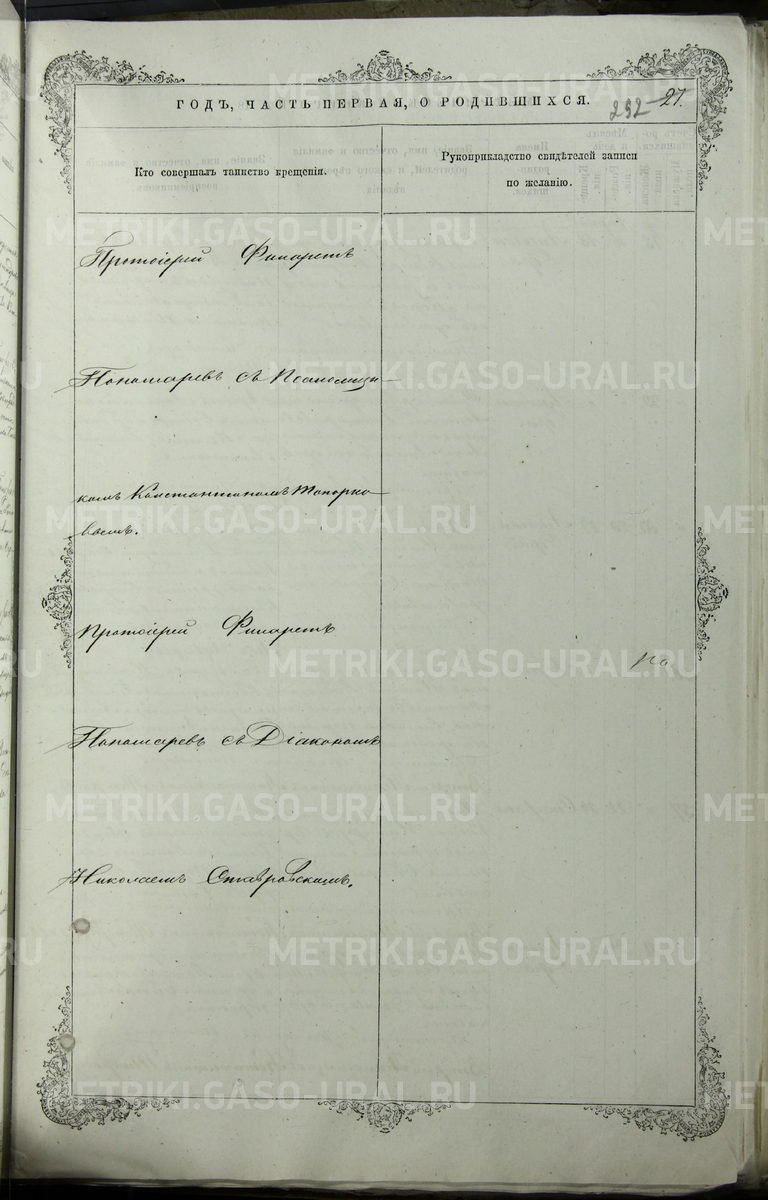 ГОДЪ, ЧАСТЬ ПЕРВАЯ, О РОДИВШИХСЯ.
292 27.
Кто совершалъ таинство крещенія.
Рукоприкладство свидѣтелей записи
по желанію.
Протоіерей Филаретъ
Пономаревъ съ Псаломщи-
комъ Константиномъ Топорко-
вымъ.
Протоіерей Филаретъ
Пономаревъ съ Діакономъ
Николаемъ Ставровскимъ.
По
METRIKI.GASO-URAL.RU